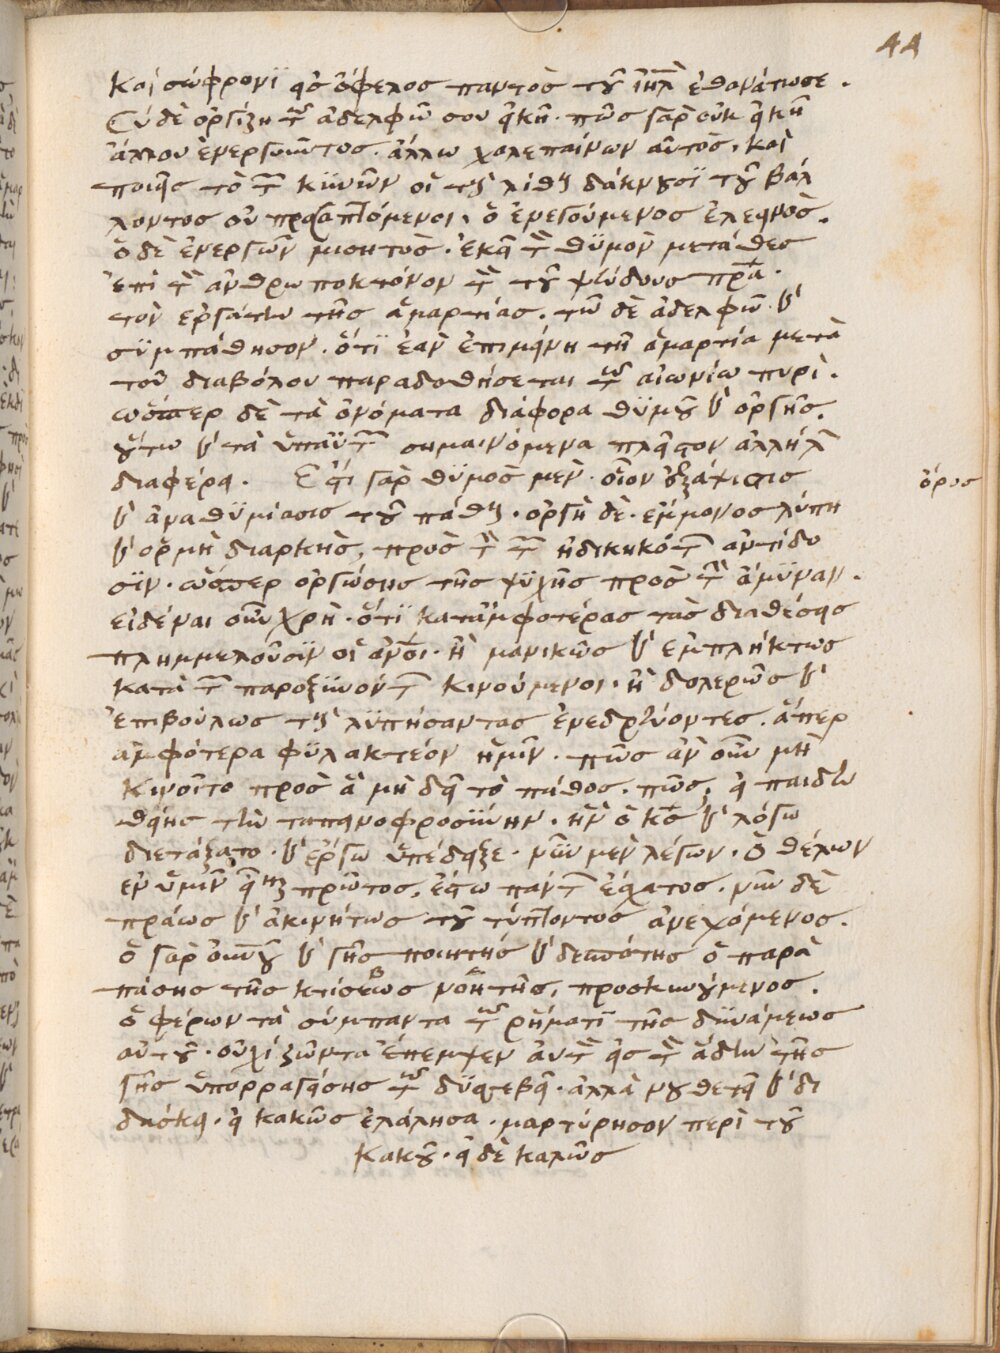 44
καὶ σώφρονϊ εἰς ὄφελος παντὸς τοῦ ἰηλ ἐθανάτωσε.
Σὺ δὲ ὀργίζη τῶ ἀδελφῶ σου εἰκῆ. πῶς γὰρ οὐκ εἰκῆ
ἄλλου ἐνεργοῦντος. ἄλλω χαλεπαίνων αὐτός. καὶ
ποιεῖς τὸ τῶν κϋνῶν οἳ τοὺς λίθους δάκνουσϊ τοῦ βάλ
λοντος οὐ προσαπτόμενοι. ὁ ἐνεργούμενος ἐλεεινὸς.
ὁ δὲ ἐνεργῶν μισητός. ἐκεῖ τὸν θϋμὸν μετάθες
ἐπὶ τὸν ἀνθρωποκτόνον τὸν τοῦ ψεύδους πρα.
τὸν ἐργάτην τῆς ἁμαρτίας. τῶ δὲ ἀδελφῶ καὶ
σϋμπάθησον. ὅτϊ ἐὰν ἐπιμείνη τῆ ἁμαρτία μετὰ
τοῦ διαβόλου παραδοθήσεται τῶ αἰωνίω πυρί.
ὥσπερ δὲ τὰ ὀνόματα διάφορα θϋμοῦ καὶ ὀργῆς.
οὕτω καὶ τὰ ὑπ' αὐτῶν σημαινόμενα πλεῖστον ἀλλήλων
διαφέρει. Ἐστι γὰρ θϋμὸς μὲν. οἷον ἔξαψις τις
ὅρος
καὶ ἀναθϋμίασις τοῦ πάθους. ὀργὴ δὲ. ἔμμονος λύπη
καὶ ὁρμὴ διαρκὴς, πρὸς τὴν τῶν ἠδικηκότων ἀντίδο
σϊν. ὥσπερ ὀργώσης τῆς ψϋχῆς πρὸς τὴν ἄμϋναν.
εἰδέναι οὖν χρὴ. ὅτϊ κατ' ἀμφοτέρας τὰς διαθέσεις
πλημμελοῦσϊν οἱ ἄνοι. ἢ μανικῶς καὶ ἐμπλήκτως
κατὰ τῶν παροξϋνόντων κινούμενοι. ἢ δολερῶς καὶ
ἐπιβούλως τοὺς λϋπήσαντας ἐνεδρεύοντες. ἅπερ
ἀμφότερα φϋλακτέον ἡμῖν. πῶς ἂν οὖν μὴ
κινοῖτο πρὸς ἃ μὴ δεῖ τὸ πάθος. πῶς. εἰ παιδευ
θείης τὴν ταπεινοφροσϋνην. ἣν ὁ κς καὶ λόγω
διετάξατο. καὶ ἔργω ὑπέδειξε. νῦν μὲν λέγων. ὁ θέλων
ἐν ὑμῖν εἶναι πρῶτος, ἔστω πάντων ἔσχατος. νῦν δὲ
πράως καὶ ἀκινήτως τοῦ τύπτοντος ἀνεχόμενος.
ὁ γὰρ οὐνοῦ καὶ γῆς ποιητὴς καὶ δεσπότης ὁ παρὰ
πάσης τῆς κτίσεως νοητῆς, προσκυνούμενος.
ὁ φέρων τὰ σύμπαντα τῶ ρήματϊ τῆς δϋνάμεως
αὐτοῦ. οὐχὶ ζῶντα ἔπεμψεν αὐτὸν εἰς τὸν ἅδην τῆς
γῆς ὑπορραγείσης τῶ δϋσσεβεῖ. ἀλλὰ νουθετεῖ καὶ δι
δάσκει. εἰ κακῶς ἐλάλησα. μαρτύρησον περὶ τοῦ
κακοῦ. εἰ δὲ καλῶς